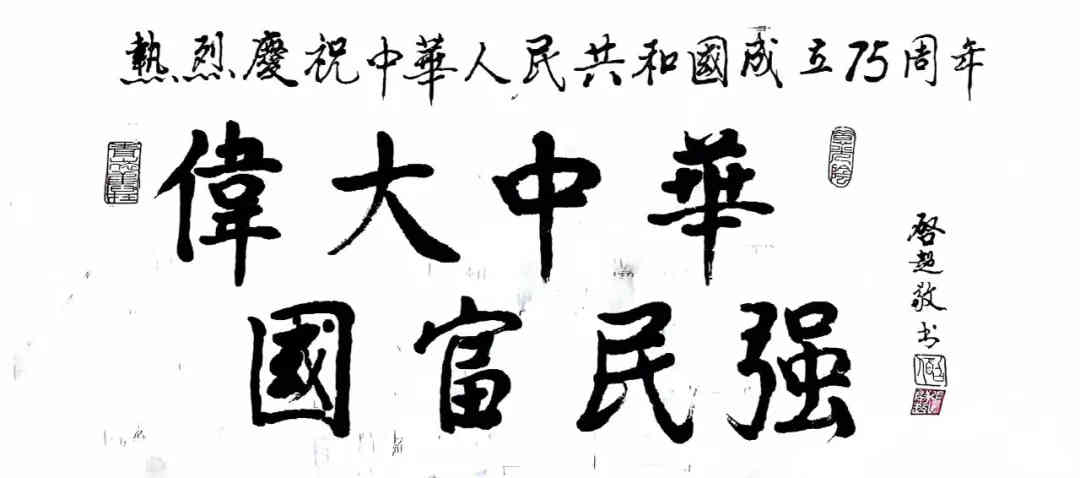 熱烈慶祝中華人民共和國成立75周年
偉大中華
國富民强
啓超敬书